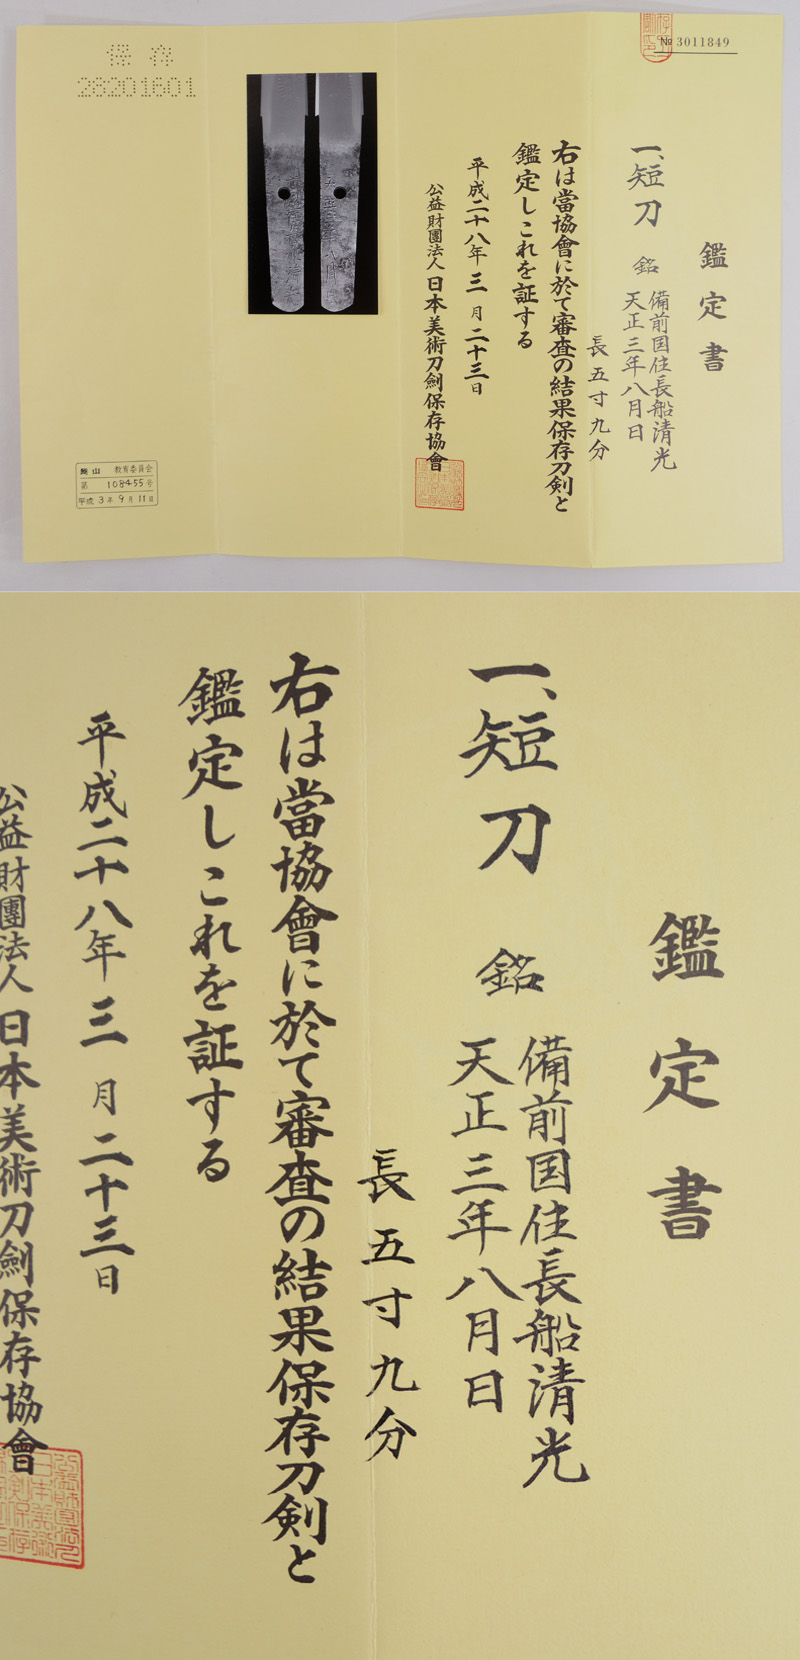 保存
28201601
№ 3011849
鑑定書
一、短刀 銘 備前国住長船清光
天正三年八月日
長五寸九分
右は當協會に於て審査の結果保存刀剣と
鑑定しこれを証する
平成二十八年三月二十三日
公益財團法人日本美術刀劍保存協會
教育委員会
第 108455 号
平成 3年 9月 11日
鑑定書
一、短刀 銘 備前国住長船清光
天正三年八月日
長五寸九分
右は當協會に於て審査の結果保存刀剣と
鑑定しこれを証する
平成二十八年三月二十三日
公益財團法人日本美術刀劍保存協會